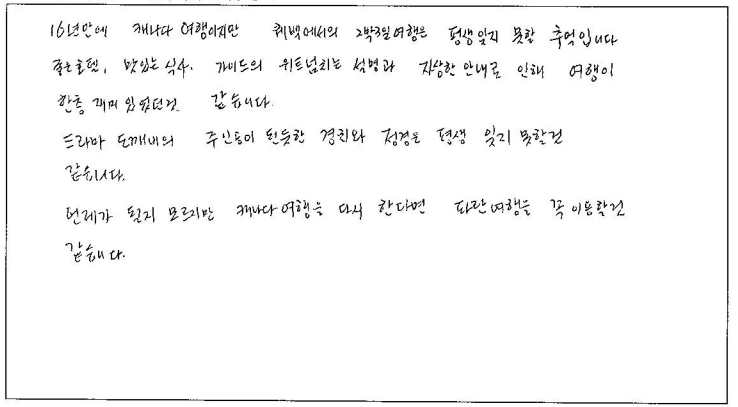 16년만에 캐나다 여행이지만 퀘백에서의 2박3일여행은 평생잊지 못할 추억입니다
좋은호텔, 맛있는 식사. 가이드의 위트넘치는 설명과 자상한 안내로 인해 여행이
한층 재미 있었던것 같습니다.
드라마 도깨비의 주인공이 된듯한 경치와 정경은 평생 잊지 못할것
같습니다.
언제가 될지 모르지만 캐나다여행을 다시 한다면 파란여행을 꼭 이용할것
같습니다.